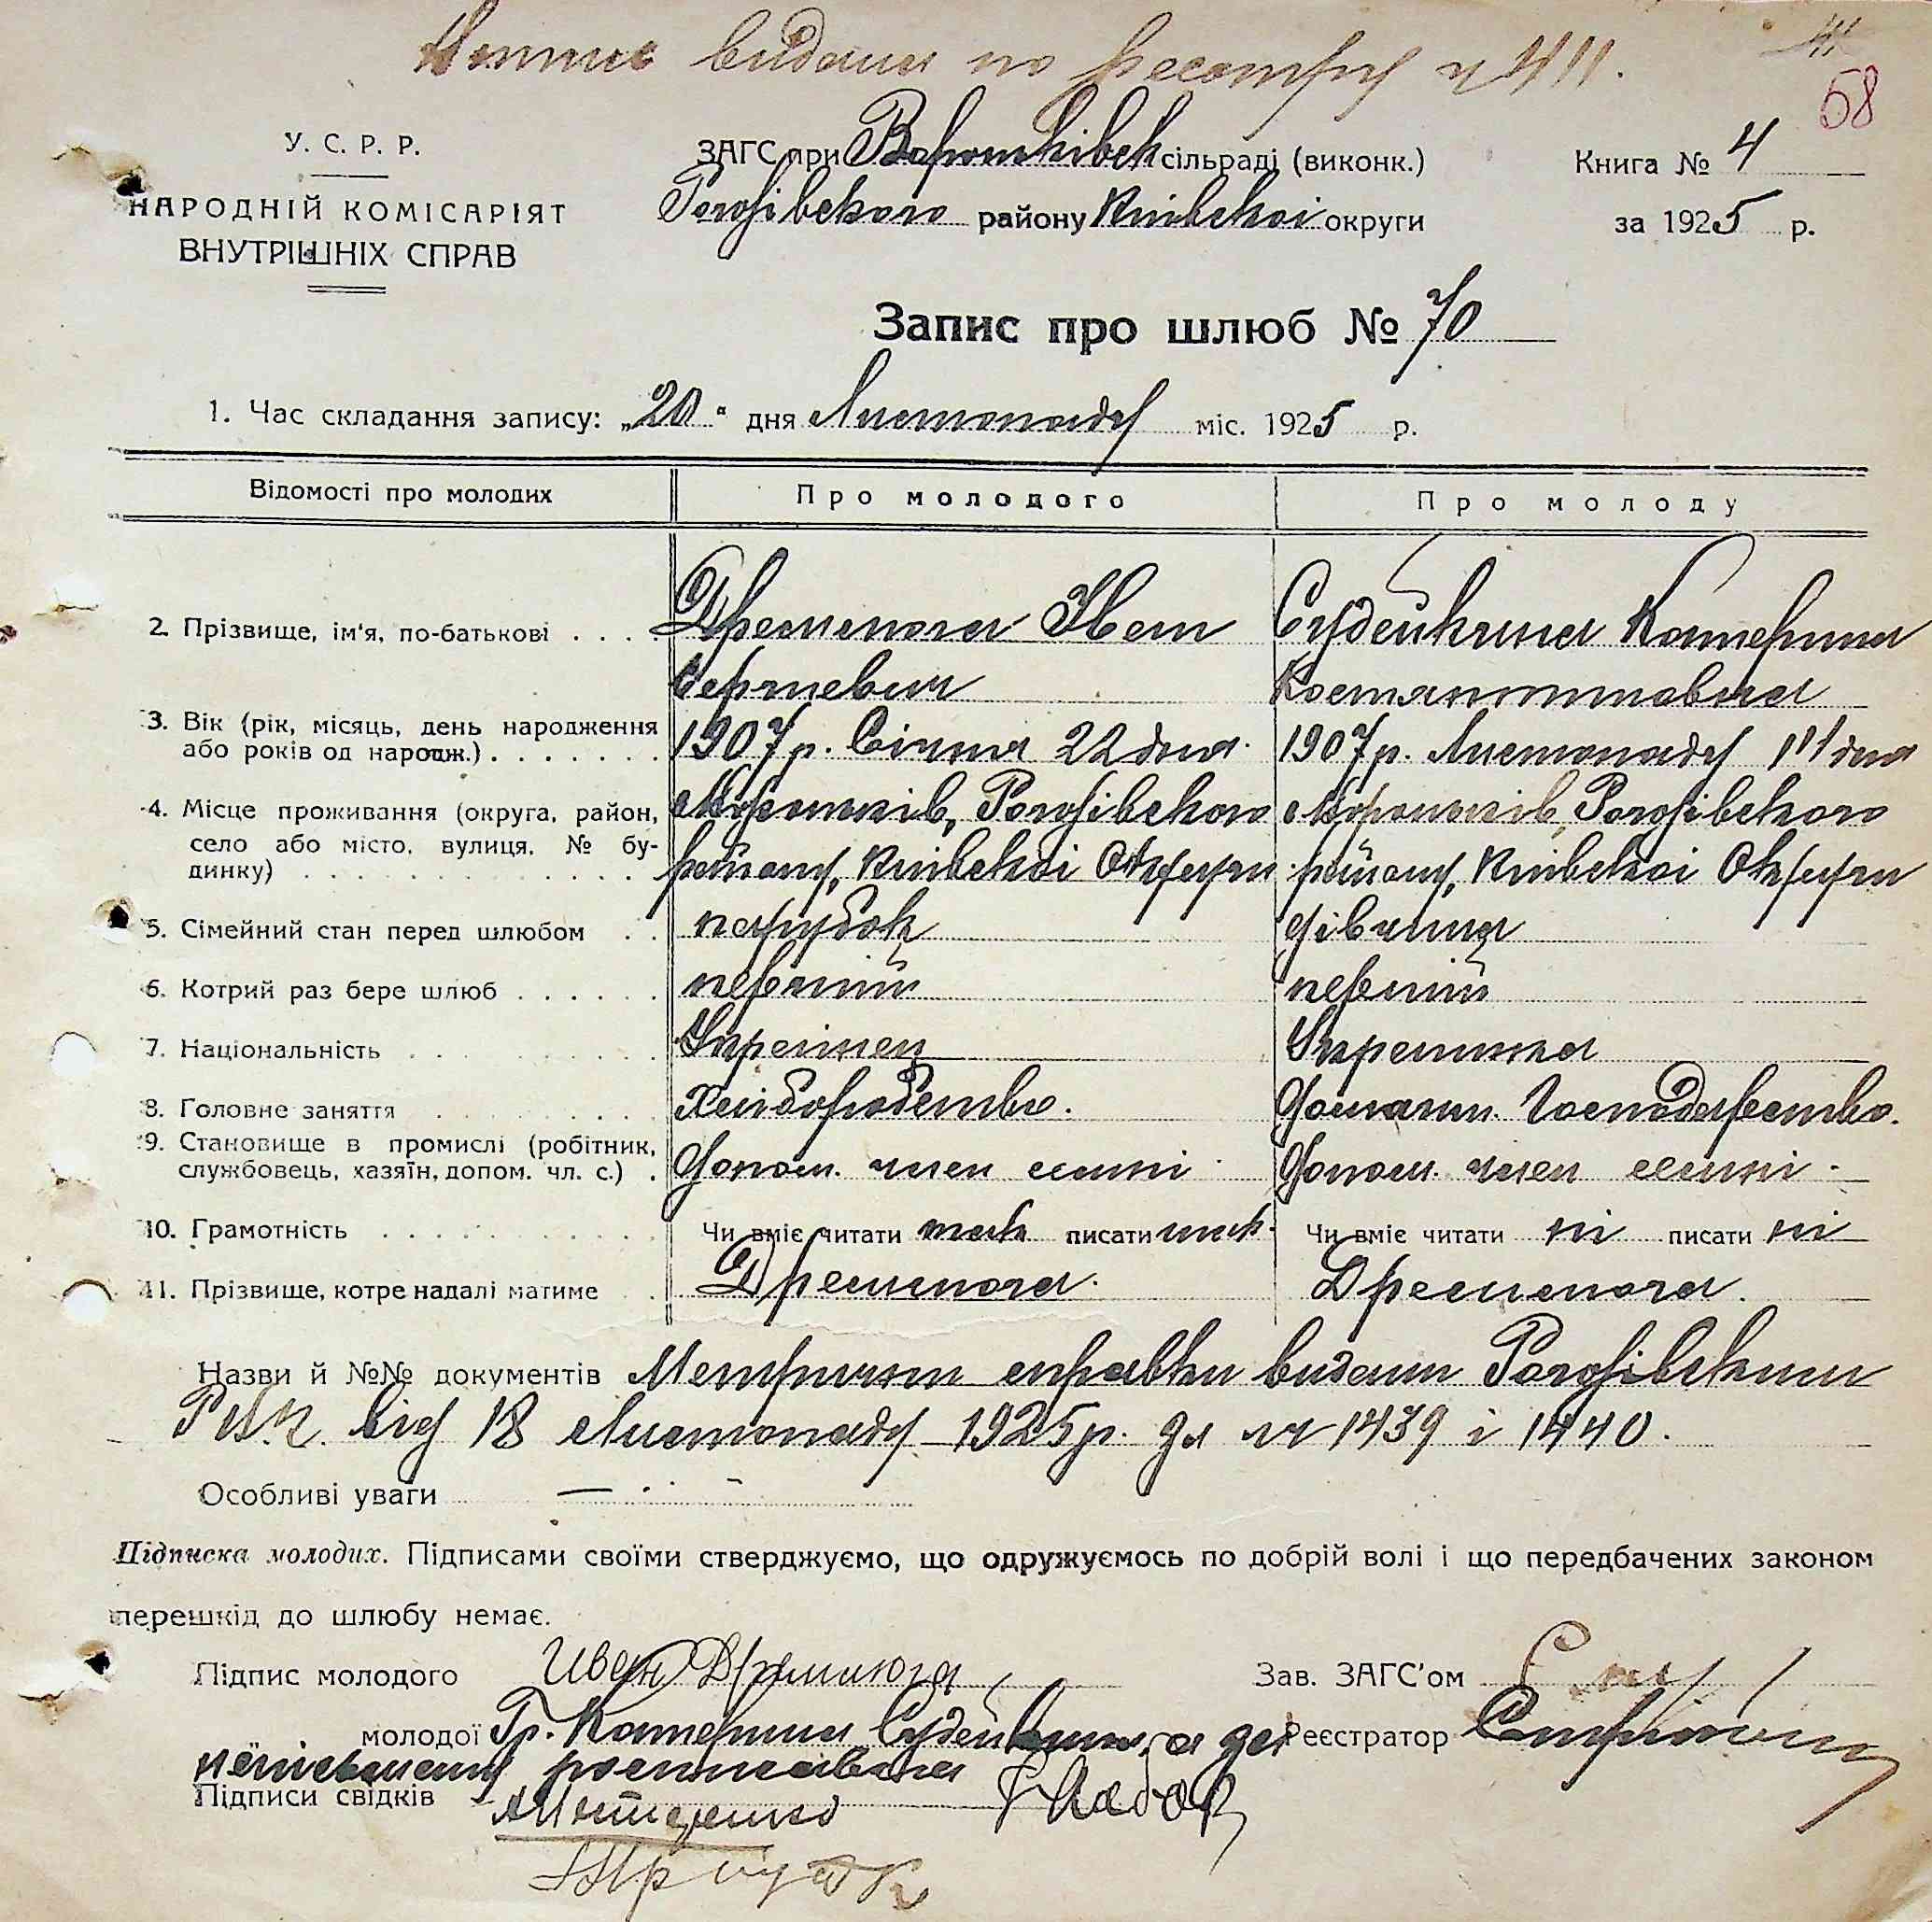 видана по реестру № 411.
58
У. С. Р. Р.
ЗАГС при Воротківськ сільраді (виконк.)
Книга № 4
НАРОДНІЙ КОМІСАРІЯТ
Рогозівського району Київської округи
за 1925 р.
ВНУТРІШНІХ СПРАВ
Запис про шлюб № 70
1. Час складання запису: „20" дня Листопада міс. 1925 р.
Відомості про молодих
Про молодого
Про молоду
2. Прізвище, ім'я, по-батькові . . . Дремлюга Іван Судейкина Катерина
Сергіевич Костянтиновна
3. Вік (рік, місяць, день народження
або років од народж.) . . . . . . . 1907 р. Січня 22 дня. 1907 р. Листопада 1 дня
4. Місце проживання (округа, район, Рогозівського Рогозівського
село або місто, вулиця, № бу-
динку) . . . . . району, Київської Округи району, Київської Округи
5. Сімейний стан перед шлюбом . . парубок дівчина
6. Котрий раз бере шлюб . . . . . . первий первий
7. Національність . . . . . Украінец Украинка
8. Головне заняття . . . . . Хліборобство. Домашн. Господарство.
9. Становище в промислі (робітник,
службовець, хазяїн, допом. чл. с.) . Допом. член семні Допом. член семні
10. Грамотність . . . . . Чи вміє читати так писати так. Чи вміє читати ні писати ні
11. Прізвище, котре надалі матиме . . Дремлюга. Дремлюга.
Назви й №№ документів Метричні справки видани Рогозівским
РВК. від 18 Листопада 1925 р. за № 1439 і 1440.
Особливі уваги —
Підписка молодих. Підписами своїми стверджуємо, що одружуємось по добрій волі і що передбачених законом
перешкід до шлюбу немає.
Підпис молодого Иван Дрємлюга
Зав. ЗАГС'ом
молодої Гр. Катерина Судейкина, а за
Реєстратор
неписьменну росписався
Підписи свідків